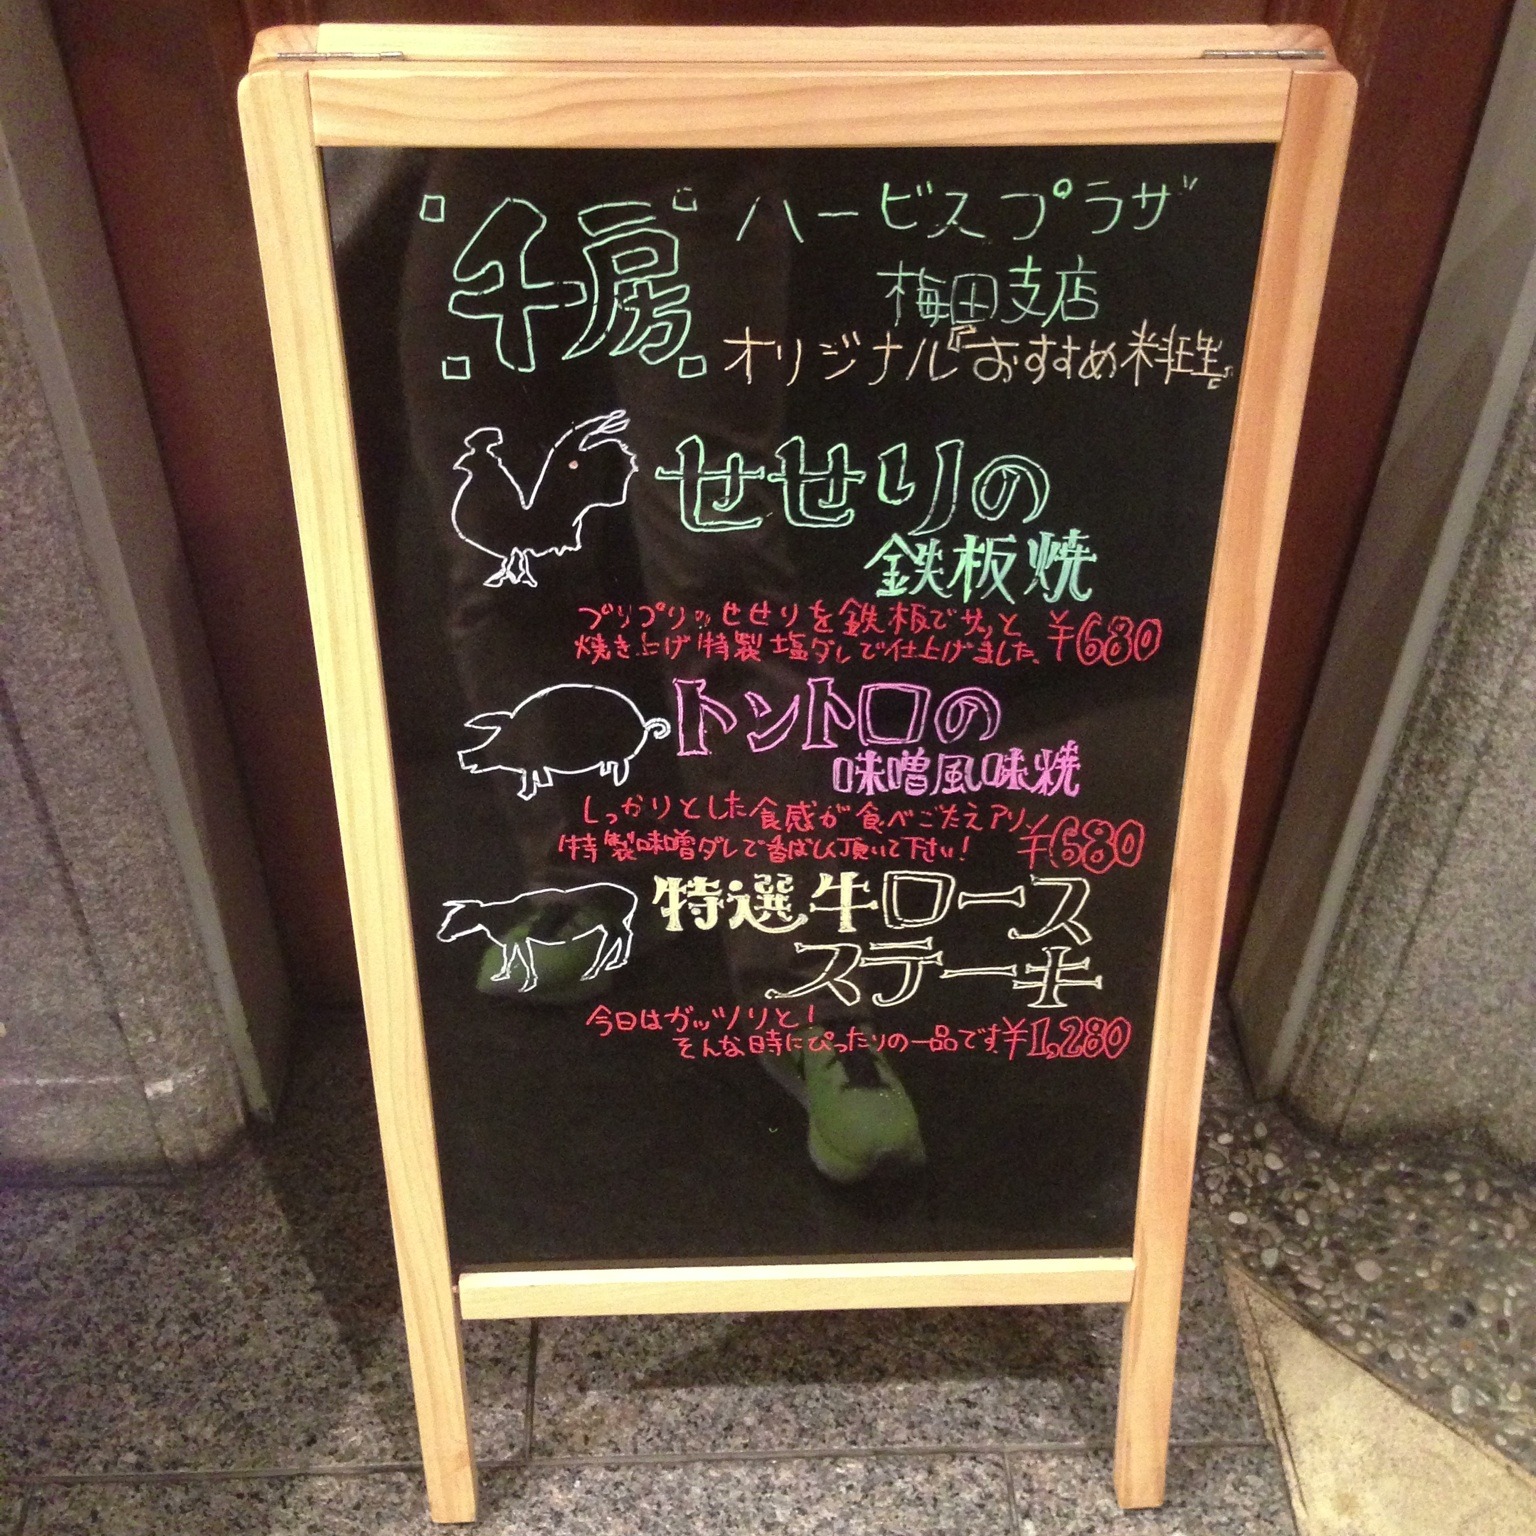 千房 ハービスプラザ
梅田支店
オリジナル『おすすめ料理』
せせりの
鉄板焼
プリプリのせせりを鉄板でサッと
焼き上げ特製塩ダレで仕上げました。 ¥680
トントロの
味噌風味焼
しっかりとした食感が食べごたえアリ!
特製味噌ダレで香ばしく頂いて下さい! ¥680
特選牛ロース
ステーキ
今日はガッツリと!
そんな時にぴったりの一品です。 ¥1,280